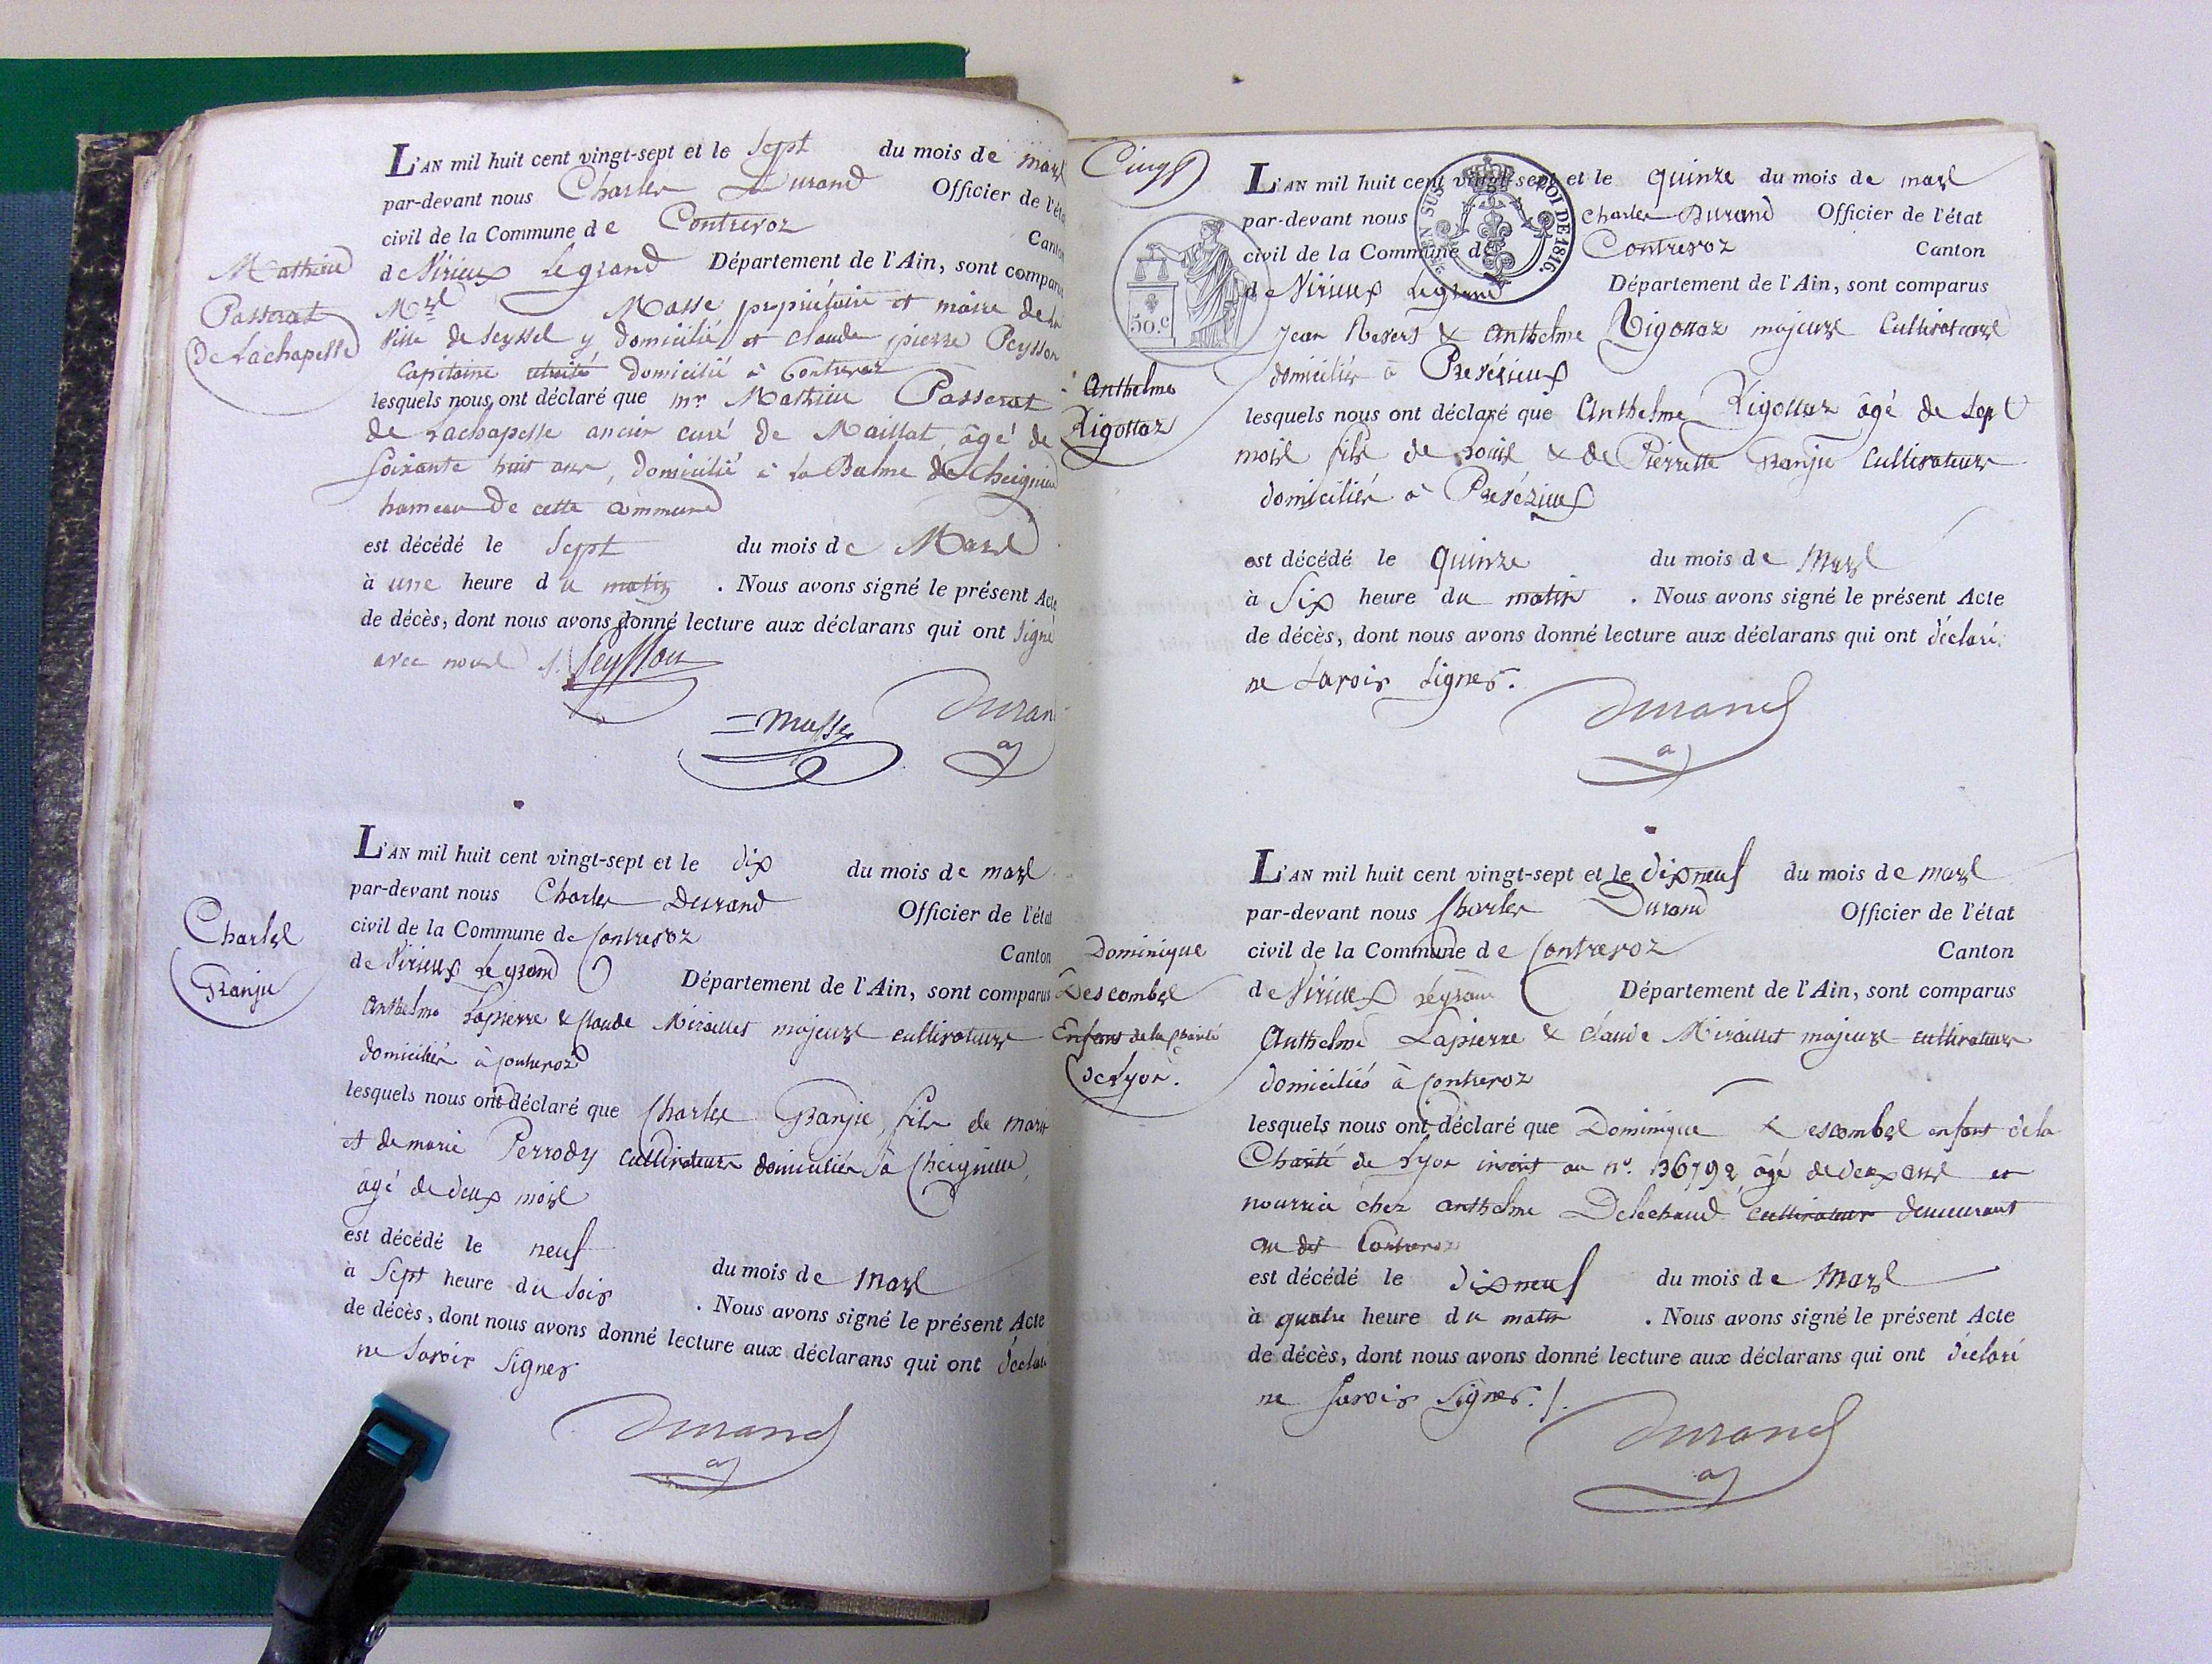 Mathieu
Passerat
De Lachapelle
L'AN mil huit cent vingt-sept et le sept du mois de mars
par-devant nous Charles Durand Officier de l'état
civil de la Commune de Contrevoz Canton
de Virieux Legrand Département de l'Ain, sont comparus
Mrs Masse propriétaire et maire de la
ville de Seyssel y domicilié et claude pierre Peysson
Capitaine retraité domicilié à Contrevoz
lesquels nous ont déclaré que mr Mathieu Passerat
de Lachapelle ancien curé de Maillat, âgé de
soixante huit ans, domicilié à La Balme de Cheignieu
hameau de cette commune
est décédé le sept du mois de Mars
à une heure du matin . Nous avons signé le présent Acte
de décès, dont nous avons donné lecture aux déclarans qui ont signé
avec nous Peysson
Masse Durand
Charles
Granju
L'AN mil huit cent vingt-sept et le dix du mois de mars
par-devant nous Charles Durand Officier de l'état
civil de la Commune de Contrevoz Canton
de Virieux Le grand Département de l'Ain, sont comparus
Anthelme Lapierre & Claude Miraillet majeurs cultivateurs
domiciliés à Contrevoz
lesquels nous ont déclaré que Charles Granju, fils de
et de marie Perrody cultivateurs domiciliés à Cheignieu,
âgé de deux mois
est décédé le neuf du mois de Mars
à sept heure du soir . Nous avons signé le présent Acte
de décès, dont nous avons donné lecture aux déclarans qui ont déclaré
ne savoir signer
Durand
Cinq
Anthelme
Rigottaz
50.c
ROI DE 1816.
L'AN mil huit cent vingt-sept et le quinze du mois de mars
par-devant nous Charles Durand Officier de l'état
civil de la Commune de Contrevoz Canton
de Virieux Legrand Département de l'Ain, sont comparus
Jean & Anthelme Rigottaz majeurs Cultivateurs
domiciliés à Prevézieux
lesquels nous ont déclaré que Anthelme Rigottaz âgé de sept
mois fils de Louis & de Pierrette Granju cultivateurs
domiciliés à Prevézieux
est décédé le quinze du mois de Mars
à six heure du matin . Nous avons signé le présent Acte
de décès, dont nous avons donné lecture aux déclarans qui ont déclaré
ne savoir signer.
Durand
Dominique
Descombes
Enfant de la charité
de Lyon.
L'AN mil huit cent vingt-sept et le dix neuf du mois de mars
par-devant nous Charles Durand Officier de l'état
civil de la Commune de Contrevoz Canton
de Virieux Légrand Département de l'Ain, sont comparus
Anthelme Lapierre & Claude Miraillet majeurs cultivateurs
domiciliés à Contrevoz
lesquels nous ont déclaré que Dominique Descombes enfant de la
Charité de Lyon inscrit au n°. 136792, âgé de deux ans en
nourrice chez anthelme Deléchaud cultivateur demeurant
au dit Contrevoz
est décédé le dix neuf du mois de Mars
à quatre heure du matin . Nous avons signé le présent Acte
de décès, dont nous avons donné lecture aux déclarans qui ont déclaré
ne savoir signer. /.
Durand